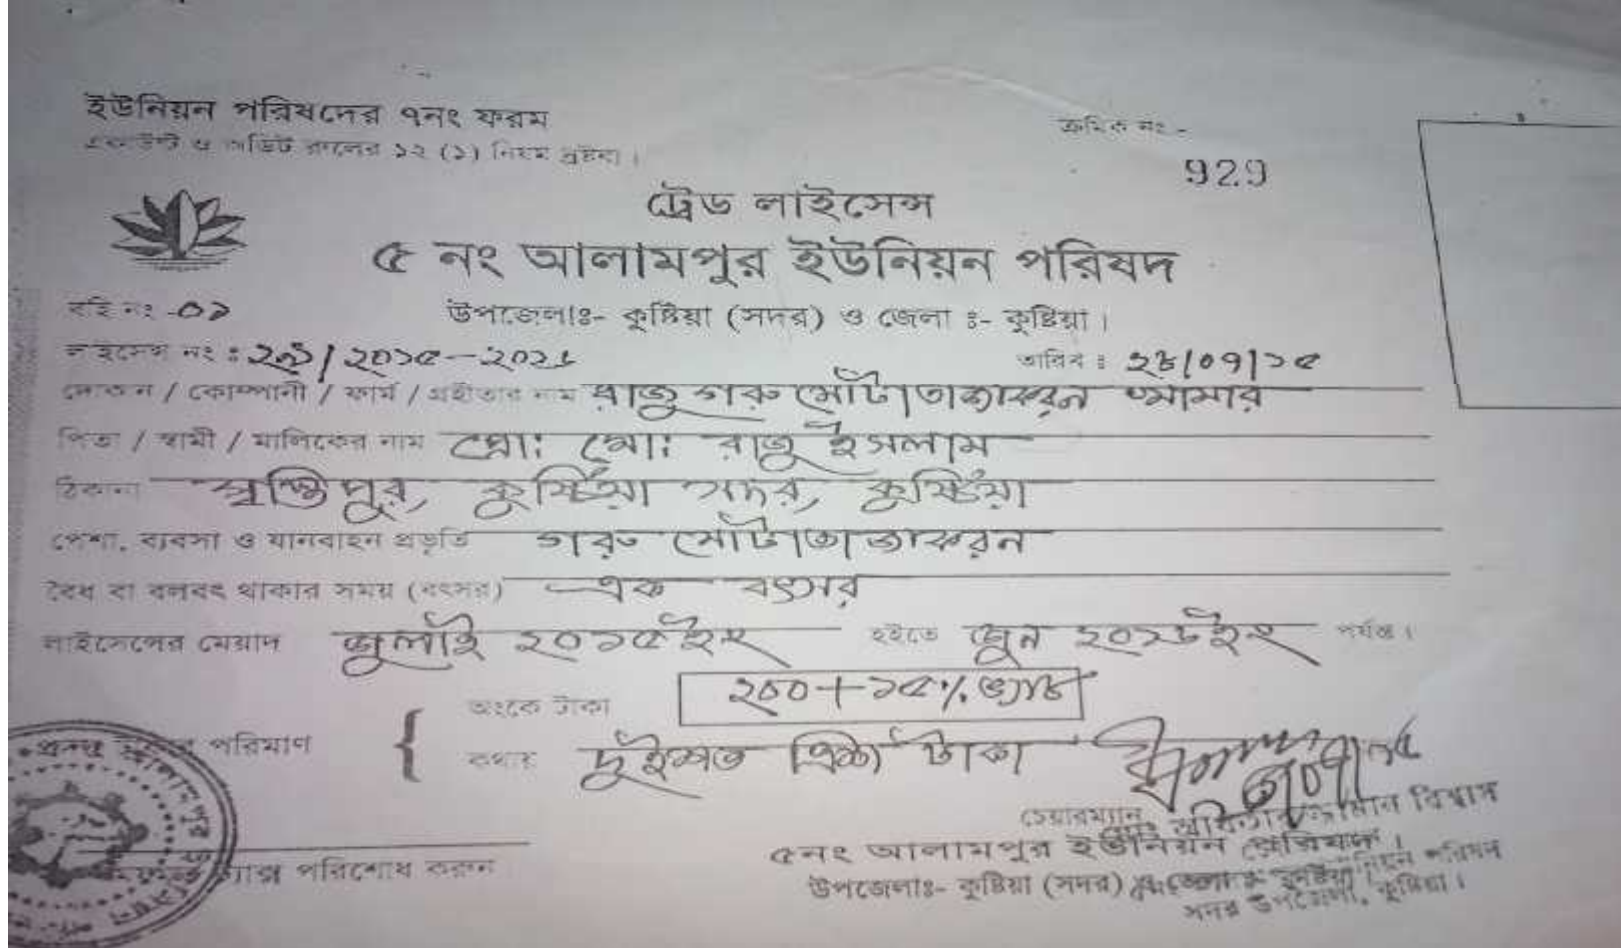 ইউনিয়ন পরিষদের ৭নং ফরম
একাউন্ট ও অডিট রুলের ১২ (১) নিয়ম দ্রষ্টব্য।
ক্রমিক নং -
929
ট্রেড লাইসেন্স
৫ নং আলামপুর ইউনিয়ন পরিষদ
বহি নং -০১
উপজেলাঃ- কুষ্টিয়া (সদর) ও জেলা ঃ- কুষ্টিয়া।
লাইসেন্স নং ঃ /২০১৫-২০১৬
তারিখ ঃ /০৭/১৫
দোকান / কোম্পানী / ফার্ম / গ্রহীতার নাম রাজু গরু মোটাতাজাকরন খামার
পিতা / স্বামী / মালিকের নাম প্রো: মো: রাজু ইসলাম
ঠিকানা স্বস্তিপুর, কুষ্টিয়া সদর, কুষ্টিয়া
পেশা, ব্যবসা ও যানবাহন প্রভৃতি গরু মোটাতাজাকরন
বৈধ বা বলবৎ থাকার সময় (বৎসর) এক বৎসর
লাইসেন্সের মেয়াদ জুলাই ২০১৫ইং হইতে জুন ২০১৬ইং পর্যন্ত।
অংকে টাকা ২৩০+১৫% ভ্যাট
পরিমাণ
কথায় দুইশত ত্রিশ টাকা
চেয়ারম্যান
বিশ্বাস
৫নং আলামপুর ইউনিয়ন পরিষদ।
উপজেলাঃ- কুষ্টিয়া (সদর)
ইউনিয়ন পরিষদ
সদর উপজেলা, কুষ্টিয়া।
পরিশোধ করুন